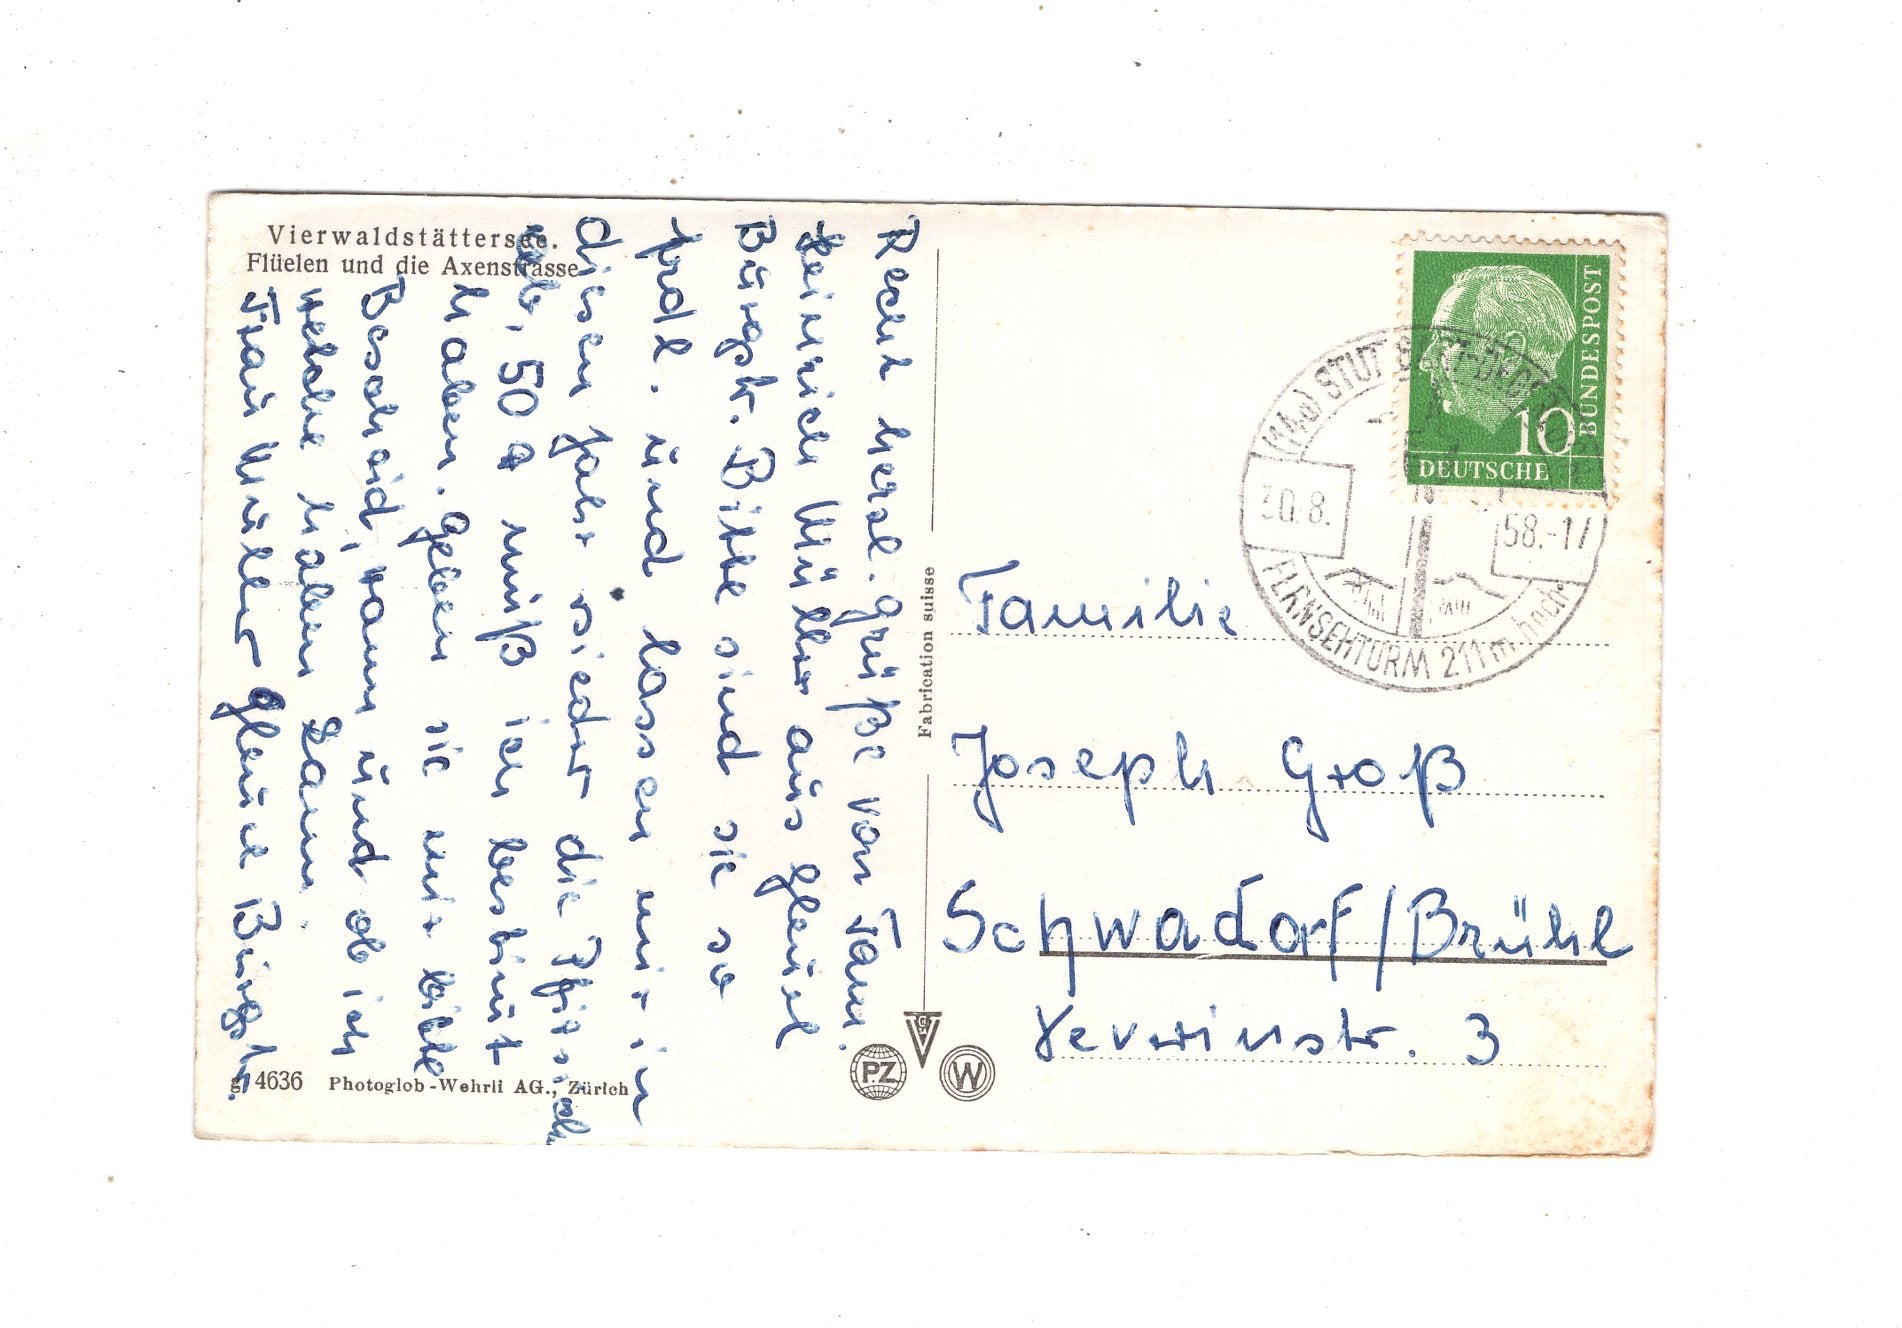 Vierwaldstättersee.
Flüelen und die Axenstrasse
Recht herzl. Grüße von Fam.
Heinrich Müller aus Gleuel
Bürgstr. Bitte sind sie so
frdl. und lassen mir in
diesen Jahr wieder die Pfirsich
ab, 50 muß ich bestimt
haben. Geben sie mir bitte
Bescheid, wann und ob ich
welche haben kann.
Frau Müller Gleuel Bürgstr.
4636 Photoglob-Wehrli AG., Zürich
Fabrication suisse
PZ
W
DEUTSCHE
BUNDESPOST
10
30.8. 58.-17
FERNSEHTURM 211 m hoch
Familie
Joseph Groß
Schwadorf/Brühl
3